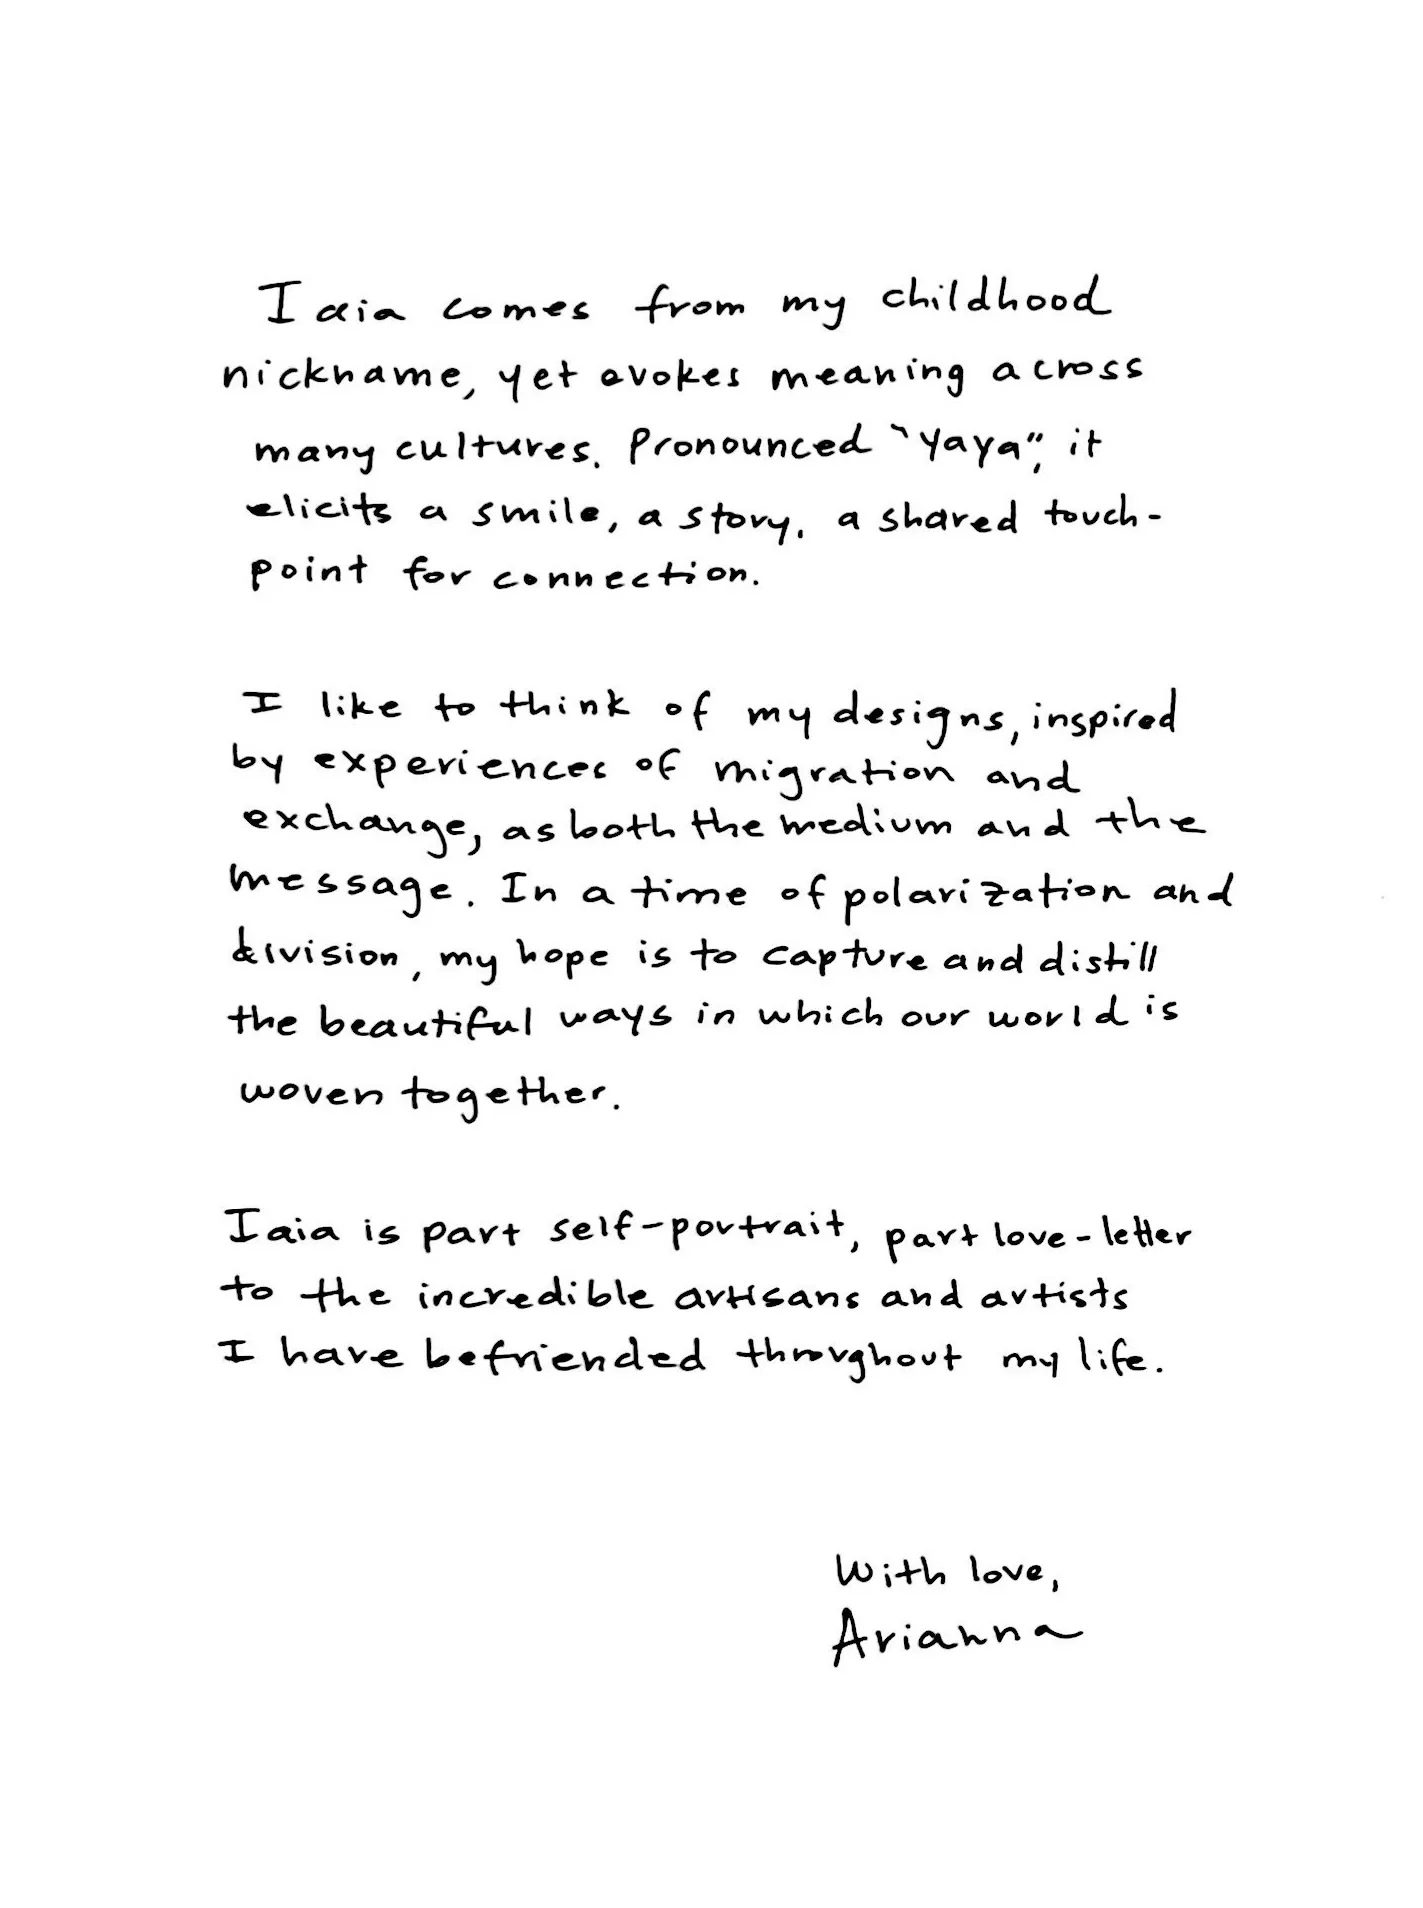 Iaia comes from my childhood
nickname, yet evokes meaning across
many cultures. Pronounced "Yaya", it
elicits a smile, a story, a shared touch-
point for connection.
I like to think of my designs, inspired
by experiences of migration and
exchange, as both the medium and the
message. In a time of polarization and
division, my hope is to capture and distill
the beautiful ways in which our world is
woven together.
Iaia is part self-portrait, part love-letter
to the incredible artisans and artists
I have befriended throughout my life.
With love,
Arianna